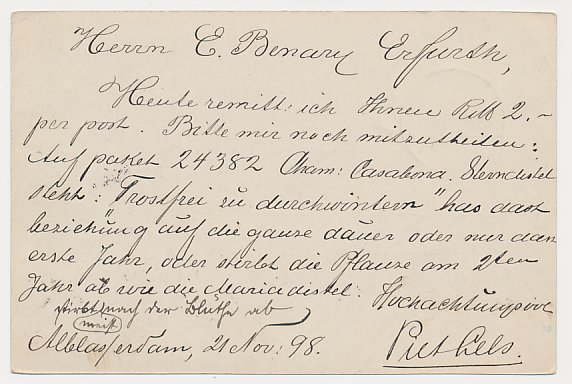 Herrn E. Benary Erfurth,
Heute remitt: ich Ihnen RM 2.-
per post. Bitte mir noch mitzutheilen:
Auf paket 24382 Cham: Casabona. Sterndistel
steht: "Frostfrei zu durchwintern" has dast
beziehung auf die ganze dauer oder nur dan
erste Jahr, oder stirbt die Pflanze am 2ten
Jahr ab wie die Mariadistel. Hochachtungsvoll
stirbt nach der Blüthe ab
meist
Alblasserdam, 21 Nov: 98. Piet